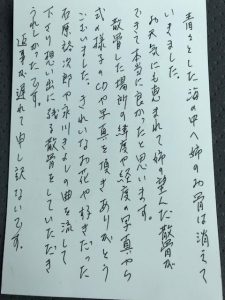 青々とした海の中へ姉のお骨は消えて
いきました。
お天気にも恵まれて姉の望んだ散骨が
できて本当に良かったと思います。
散骨した場所の緯度や経度の写真やら
式の様子のCDや写真を頂きありがとう
ございました。きれいなお花や好きだった
石原裕次郎や氷川きよしの曲を流して
下さり思い出に残る散骨をしていただき
うれしかったです。
返事が遅れて申し訳ないです。